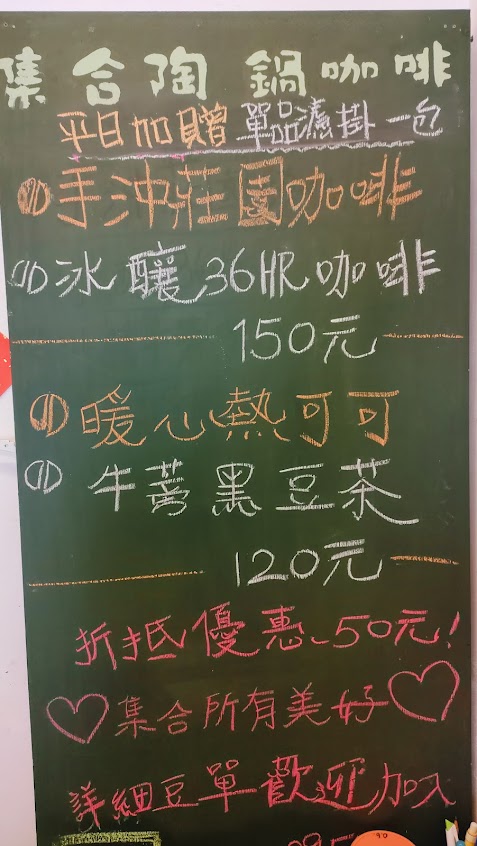 集合陶鍋咖啡
平日加贈單品濾掛一包
手沖莊園咖啡
冰釀36HR咖啡
150元
暖心熱可可
牛蒡黑豆茶
120元
折抵優惠50元!
集合所有美好
詳細豆單歡迎加入